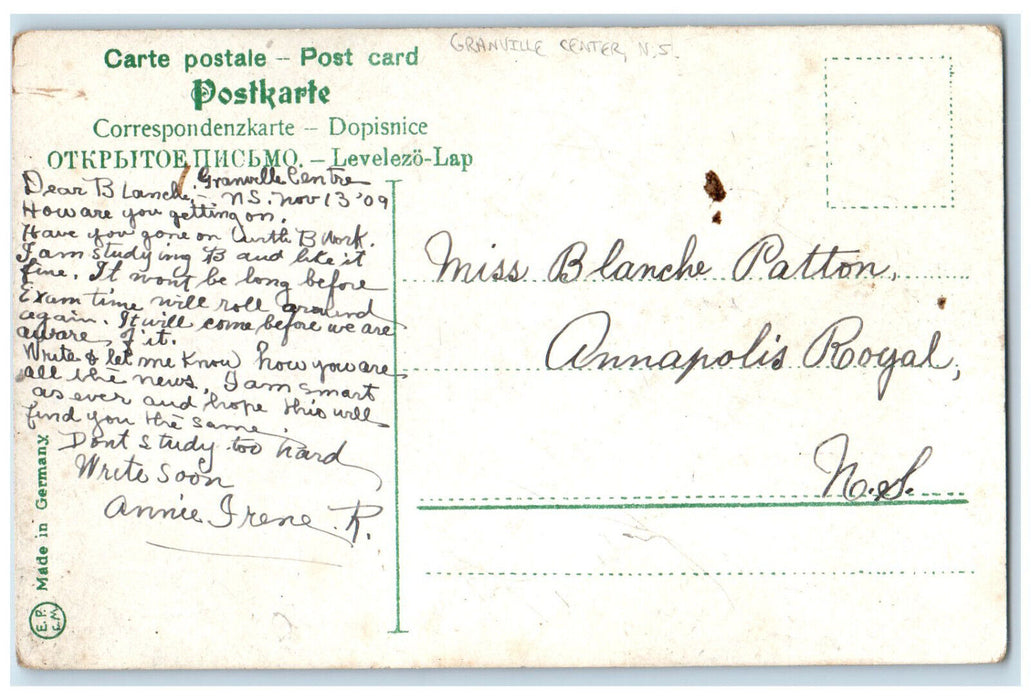 GRANVILLE CENTER, N.S.
Carte postale – Post card
Postkarte
Correspondenzkarte – Dopisnice
ОТКРЫТОЕ ПИСЬМО. – Levelezö-Lap
Granville Centre
Dear Blanche,– N.S. Nov 13 '09
How are you getting on.
Have you gone on with B work.
I am studying B and like it
fine. It wont be long before
Exam time will roll around
again. It will come before we are
aware of it.
Write & let me know how you are
all the news. I am smart
as ever and hope this will
find you the same.
Dont study too hard
Write soon
Annie Irene R.
Miss Blanche Patton,
Annapolis Royal,
N.S.
Made in Germany
E.P.